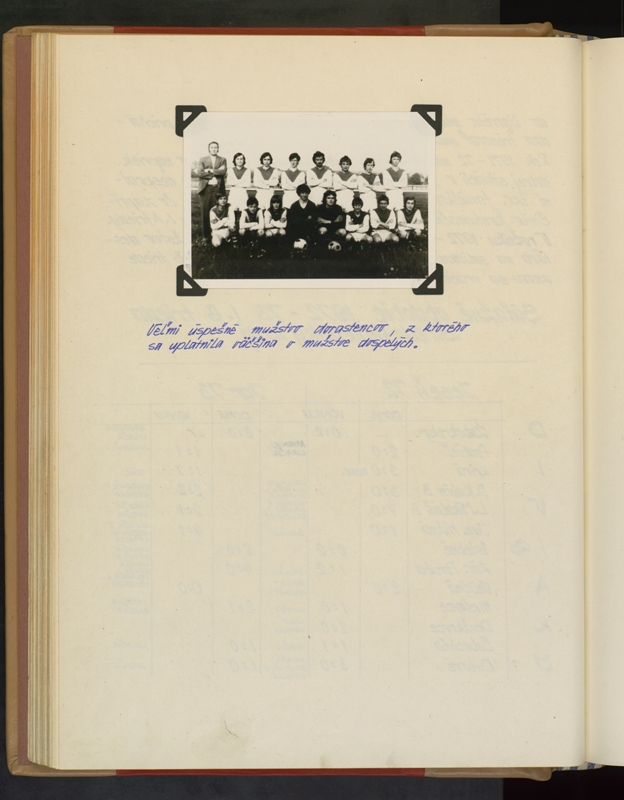 Veľmi úspešné mužstvo dorastencov, z ktorého
sa uplatnila väčšina v mužstve dospelých.